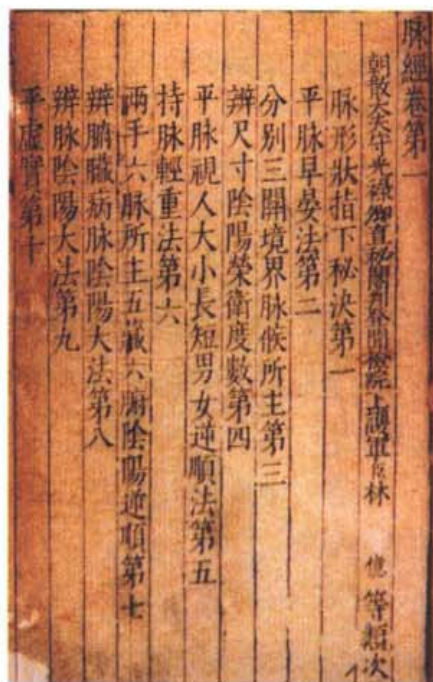 脉經卷第一
朝散大夫守光祿卿直秘閣判登聞檢院上護軍臣林億等類次
脉形狀指下秘決第一
平脉早晏法第二
分别三關境界脉候所主第三
辨尺寸陰陽榮衛度數第四
平脉視人大小長短男女逆順法第五
持脉輕重法第六
兩手六脉所主五藏六腑陰陽逆順第七
辨臟腑病脉陰陽大法第八
辨脉陰陽大法第九
平虛實第十